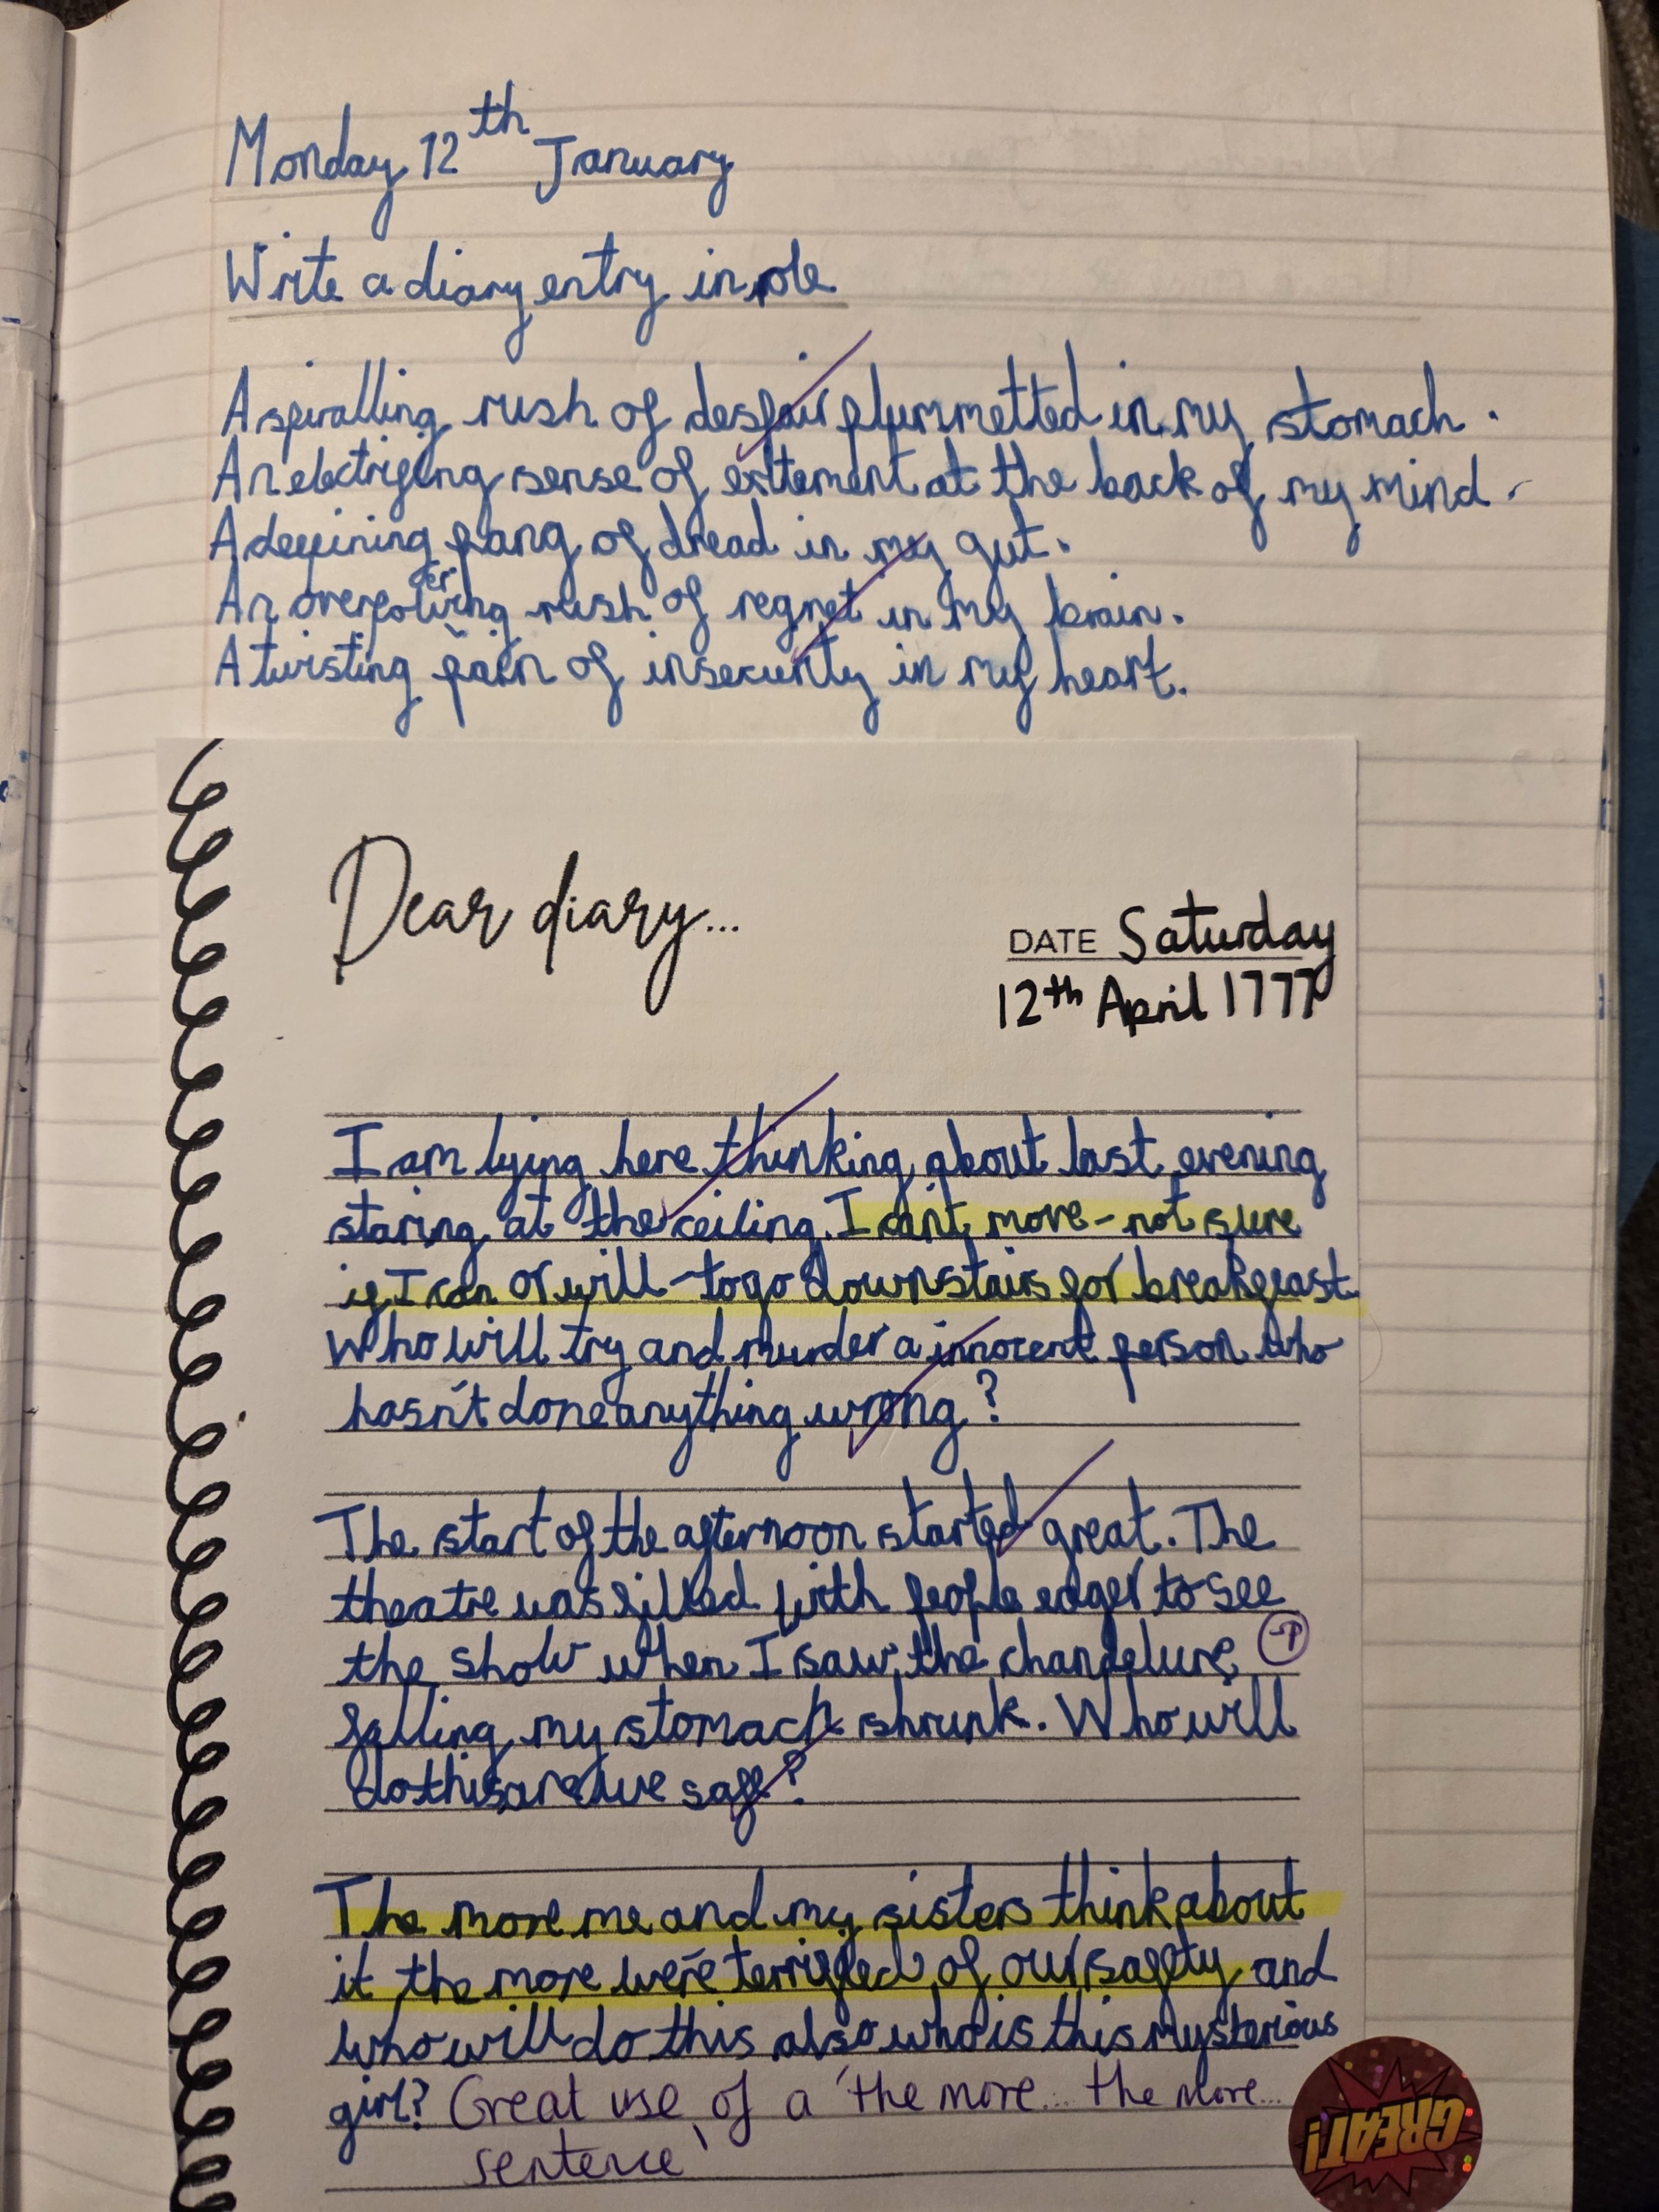 Monday 12th January
Write a diary entry in role
A spiralling rush of despair plummetted in my stomach.
An electrifying sense of exitement at the back of my mind.
A defining pang of dread in my gut.
An overpowering rush of regret in my brain.
A twisting pain of insecurity in my heart.
Dear diary...
DATE Saturday
12th April 1777
I am lying here thinking about last evening
staring at the ceiling. I can't move - not sure
if I can or will - to go downstairs for breakfast.
Who will try and murder a innocent person who
hasn't done anything wrong?
The start of the afternoon started great. The
theatre was filled with people eager to see
the show when I saw the chandelure sp
falling my stomach shrunk. Who will
do this are we safe?
The more me and my sisters think about
it the more we're terrified of our safety and
who will do this also who is this mysterious
girl? Great use of a 'the more... the more...
sentence'
GREAT!